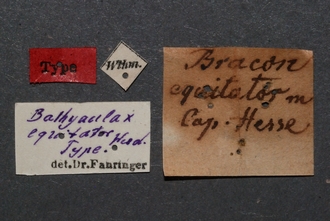 Type
Bathyaulax
equitator
Type.
det.Dr.Fahringer
Bracon
equitator m
Cap. Hesse